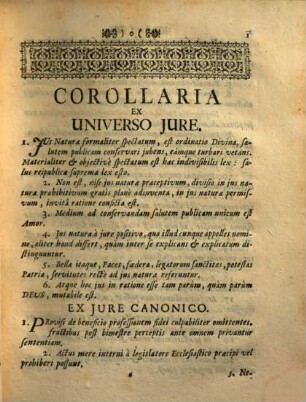 o 1
COROLLARIA
EX
UNIVERSO JURE.
1. JUs Naturæ formaliter spectatum, est ordinatio Divina, sa-
lutem publicam conservari jubens, eamque turbari vetans.
Materialiter & objectivè spectatum est hæc indivisibilis lex: sa-
lus reipublicæ suprema lex esto.
2. Non est, nisi jus naturæ præceptivum, divisio in jus na-
turæ prohibitivum gratis planè adinventa, in jus naturæ permis-
sivum, invitâ ratione conficta est.
3. Medium ad conservandam salutem publicam unicum est
Amor.
4. Jus naturæ à jure positivo, quo illud cunque appelles nomi-
ne, aliter haud differt, quàm inter se explicans & explicatum di-
stinguuntur.
5. Bella itaque, Paces, fœdera, legatorum sanctitas, potestas
Patria, servitutes rectè ad jus naturæ referuntur.
6. Atque hoc jus in ratione esse tam parùm, quàm parùm
DEUS, mutabile est.
EX JURE CANONICO.
1. PRovisi de beneficio professionem fidei culpabiliter omittentes,
fructibus post bimestre perceptis ante omnem privantur
sententiam.
2. Actus merè interni à legislatore Ecclesiastico præcipi vel
prohiberi possunt,
3. Ne-